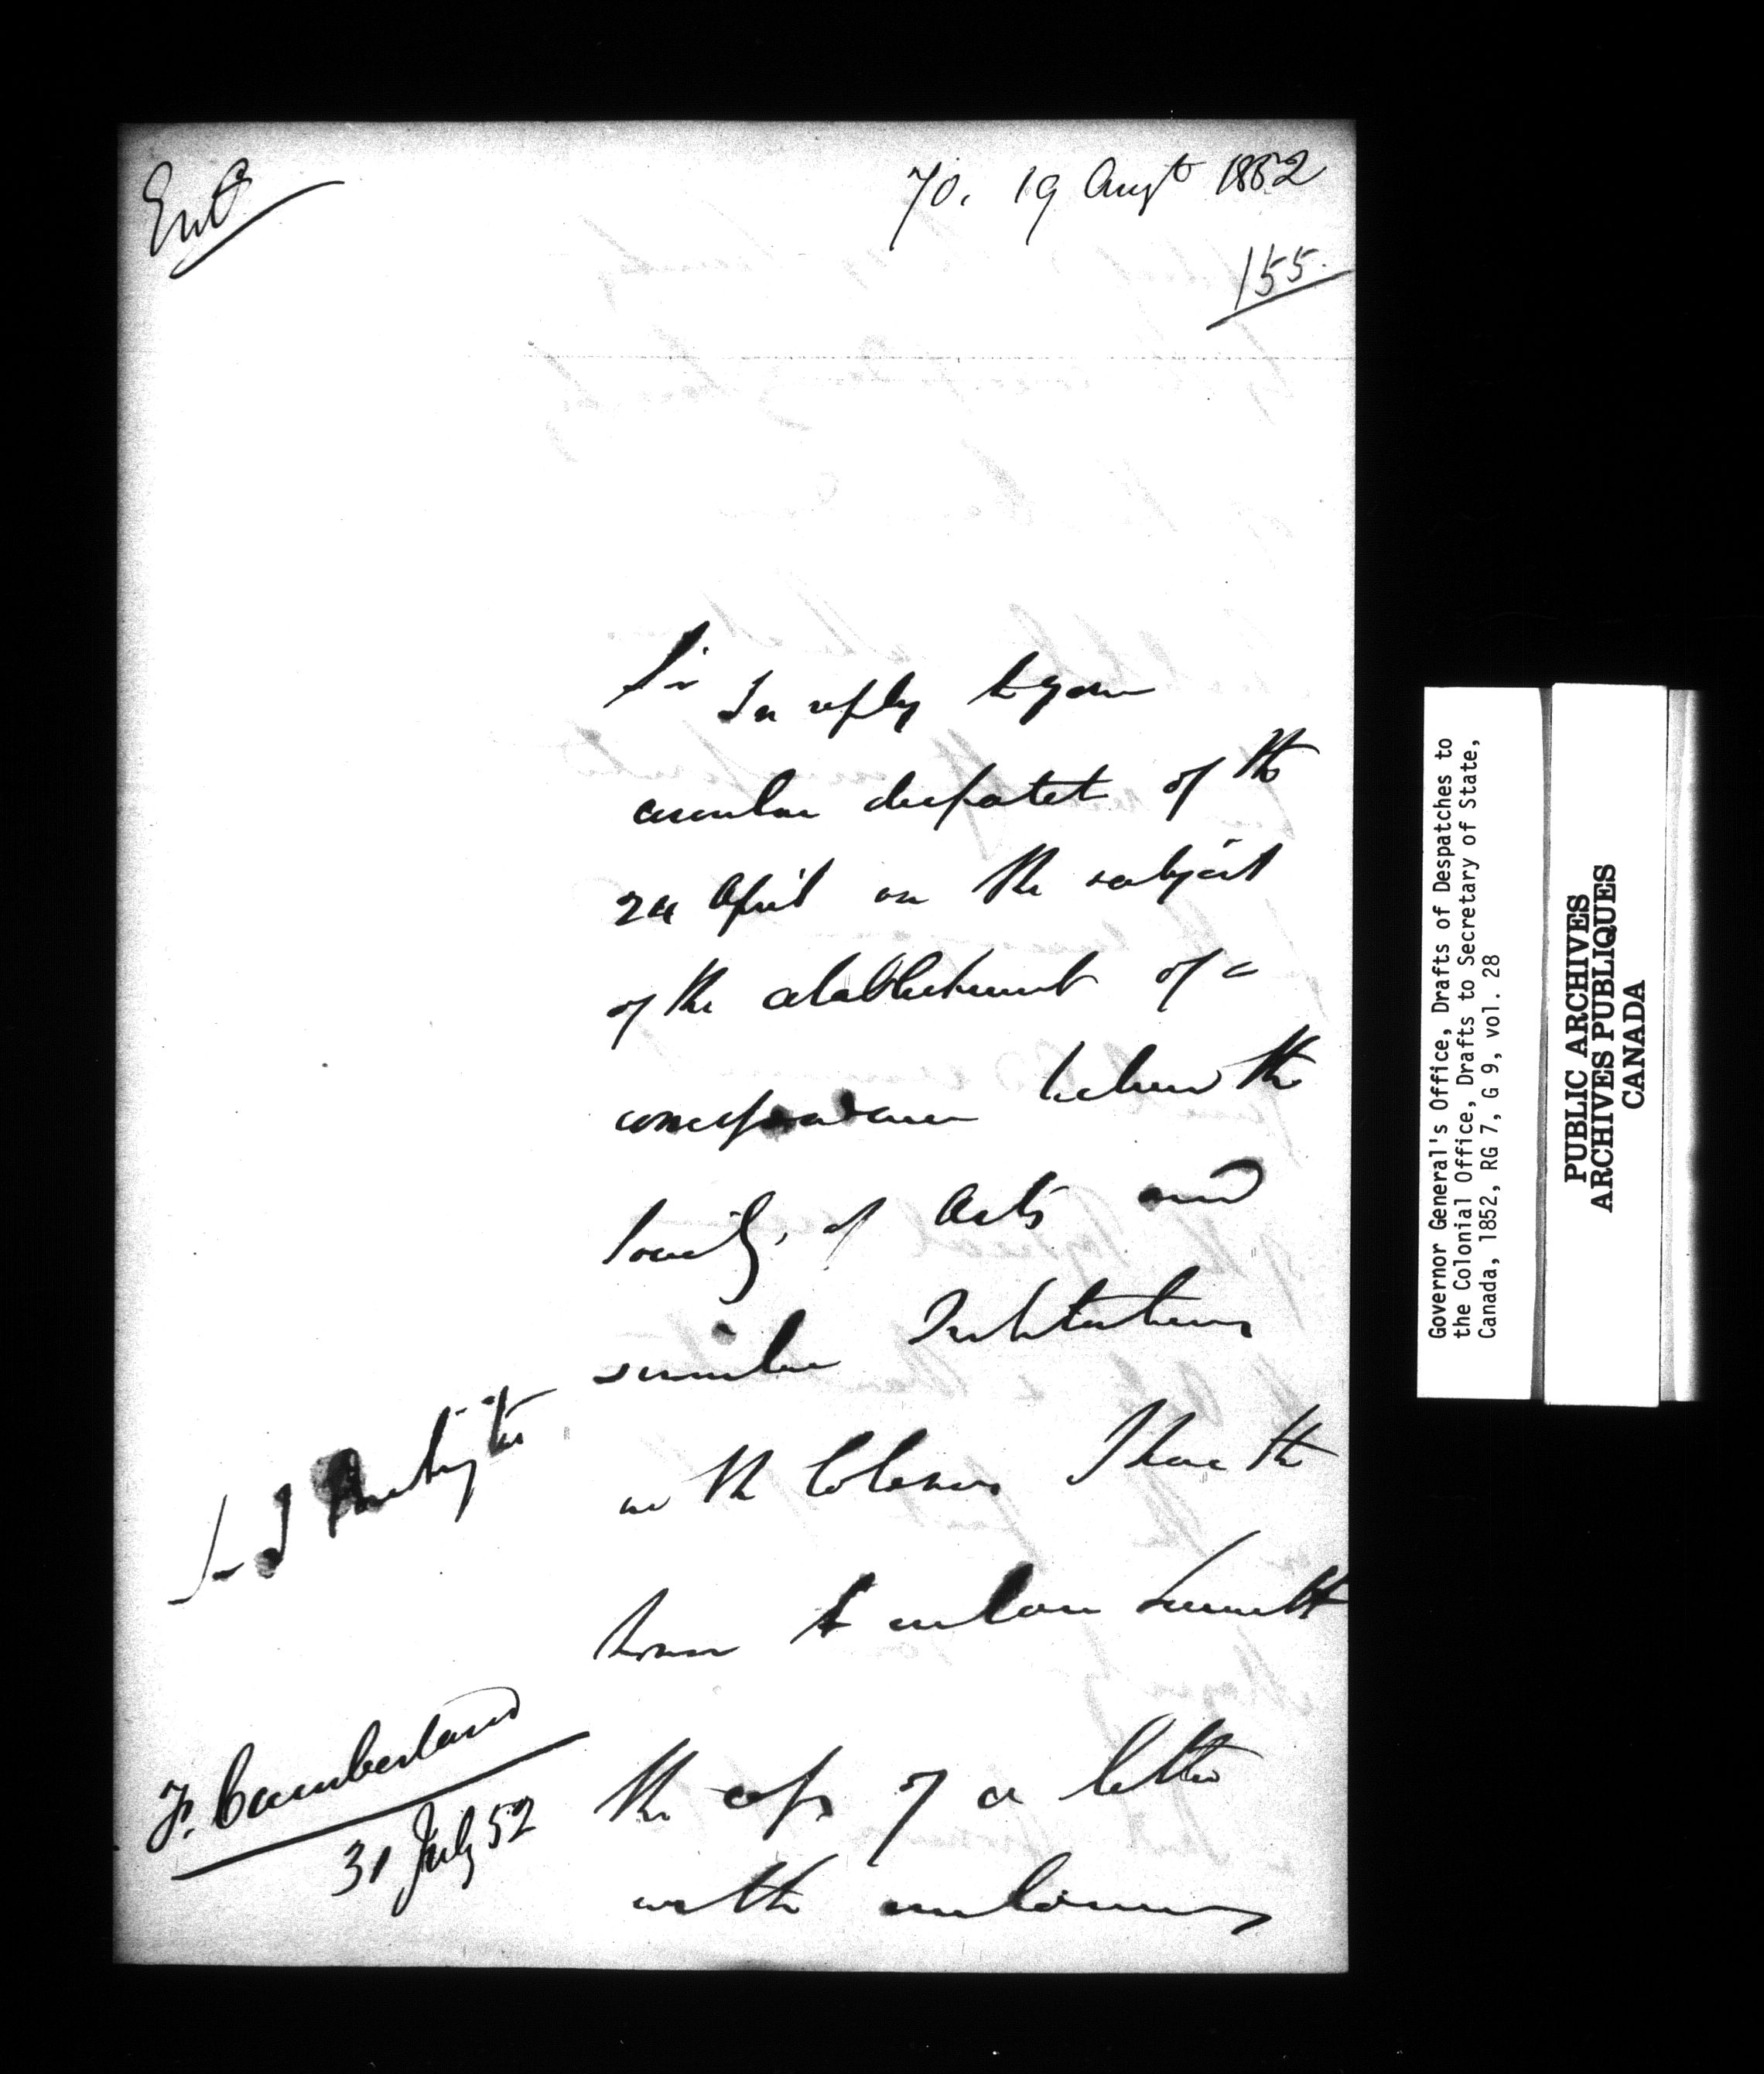 Entd
70. 19 Augt 1852
155.
Sir
In reply to your
circular despatch of the
April on the subject
of the establishment of a
correspondence between the
Society of Arts and
similar Institutions
in the Colonies I have the
honor to enclose herewith
the copy of a letter
with enclosures
Sir J Pakington
F. Cumberland
31 July 52
Governor General's Office, Drafts of Despatches to
the Colonial Office, Drafts to Secretary of State,
Canada, 1852, RG 7, G 9, vol. 28
PUBLIC ARCHIVES
ARCHIVES PUBLIQUES
CANADA